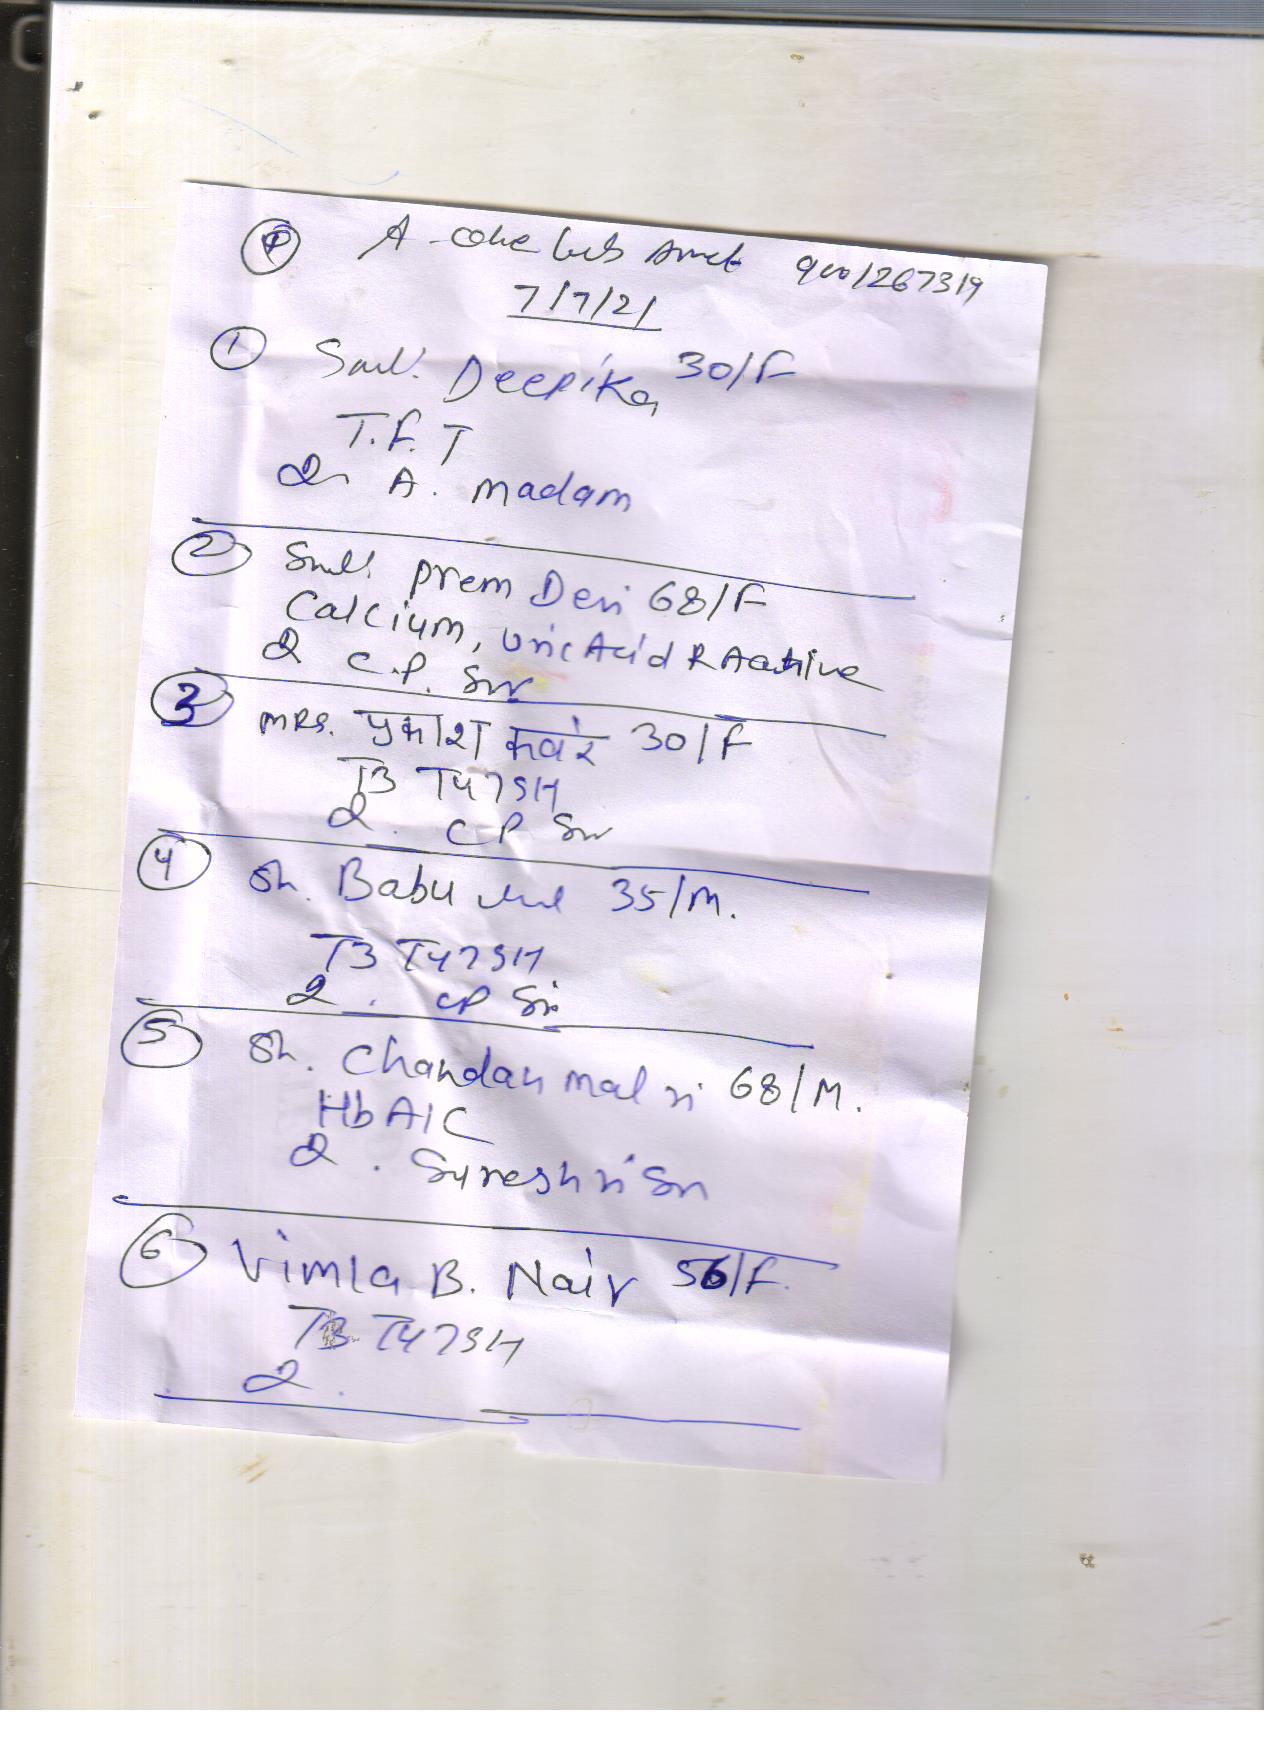 A - Lab 9001267319
7/7/21
① Smt. Deepika 30/F
T.F.T
Dr A. Madam
② Smt. Prem Devi 68/F
Calcium, Uric Acid RA
Dr C.P. Sir
③ MRS. प्रकाश कवंर 30/F
T3 T4 TSH
Dr. CP Sir
④ Sh. Babu Lal 35/M.
T3 T4 TSH
Dr. CP Sir
⑤ Sh. Chandan mal Ji 68/M.
HbA1C
Dr. Suresh Ji Sir
⑥ Vimla B. Nair 56/F.
T3 T4 TSH
Dr.